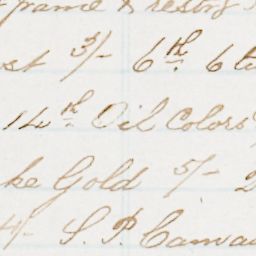 frame & restg
3/- 6th 6
14th Oil Colors
Gold 5/-
4/- S. P. Canva